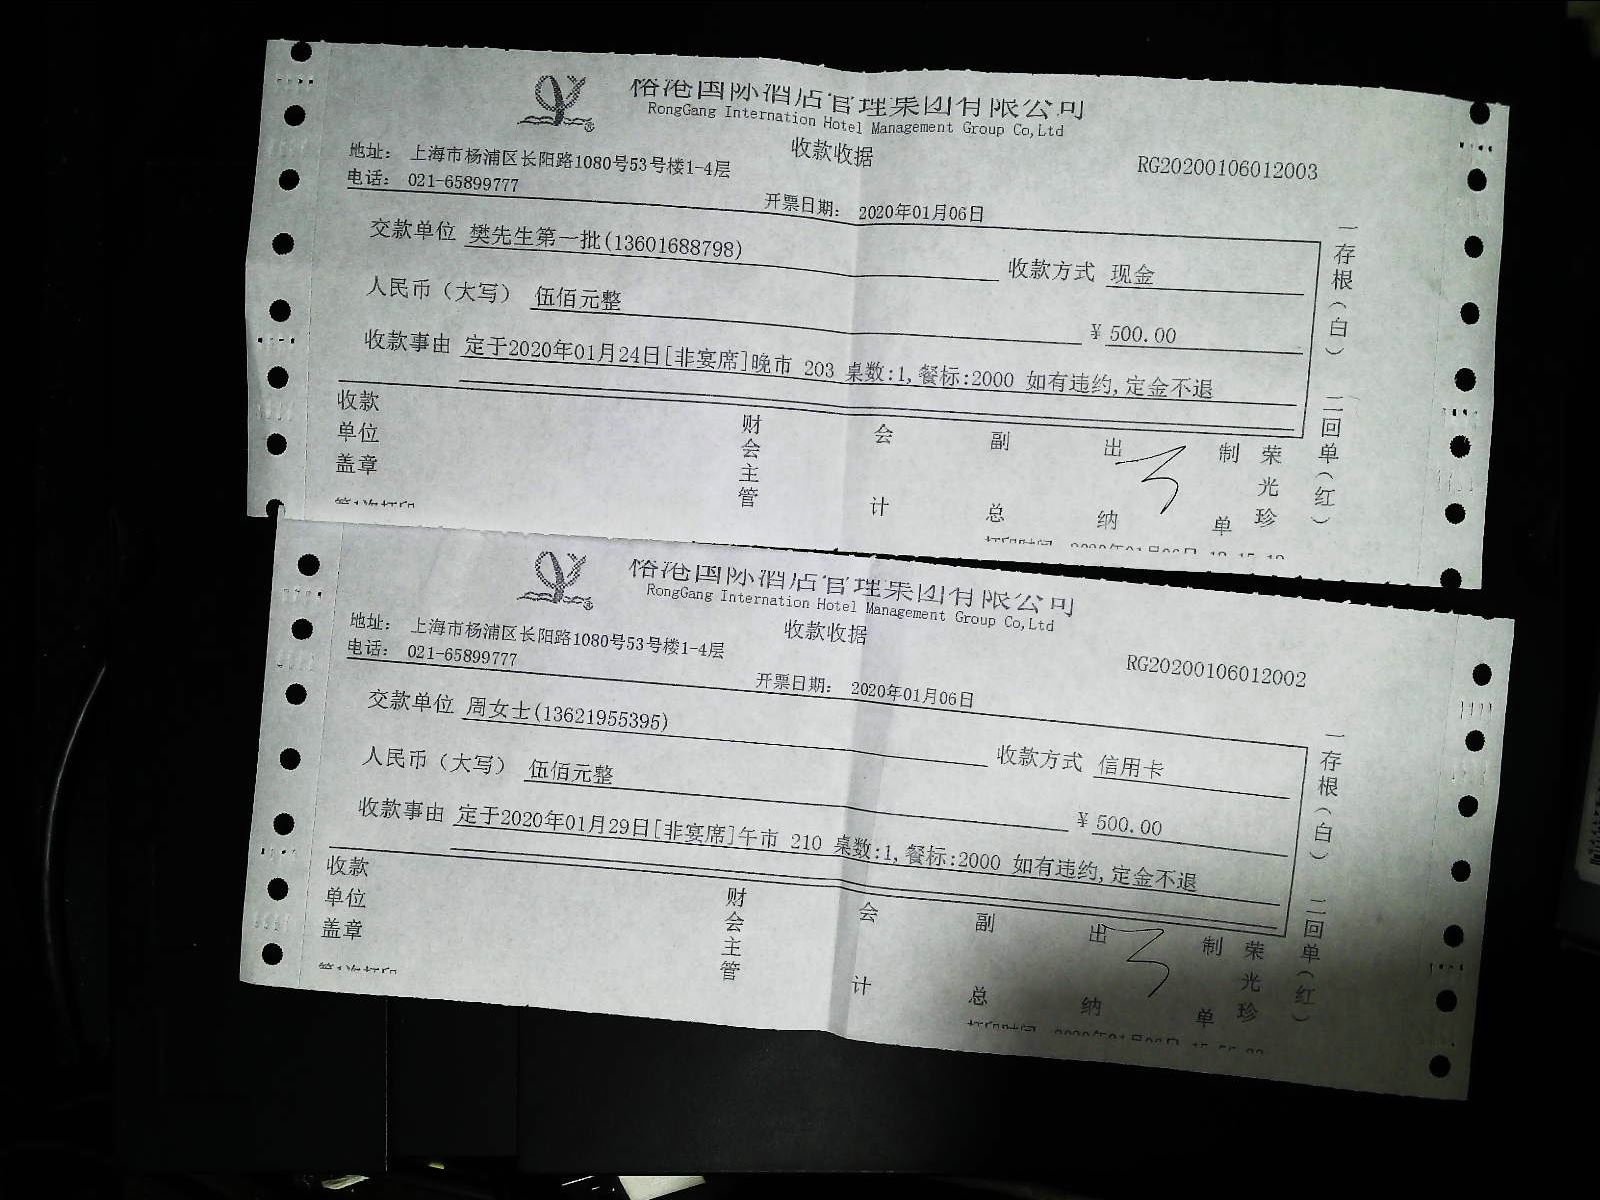 榕港国际酒店管理集团有限公司
RongGang Internation Hotel Management Group Co,Ltd
收款收据
地址: 上海市杨浦区长阳路1080号53号楼1-4层
RG20200106012003
电话: 021-65899777
开票日期: 2020年01月06日
交款单位 樊先生第一批(13601688798)
收款方式 现金
人民币（大写） 伍佰元整
¥ 500.00
收款事由 定于2020年01月24日[非宴席]晚市 203 桌数:1,餐标:2000 如有违约,定金不退
一存根(白) 二回单(红)
收款单位盖章
财会主管
会计
副总
出纳
制单
荣光珍
第1次打印
榕港国际酒店管理集团有限公司
RongGang Internation Hotel Management Group Co,Ltd
收款收据
地址: 上海市杨浦区长阳路1080号53号楼1-4层
RG20200106012002
电话: 021-65899777
开票日期: 2020年01月06日
交款单位 周女士(13621955395)
收款方式 信用卡
人民币（大写） 伍佰元整
¥ 500.00
收款事由 定于2020年01月29日[非宴席]午市 210 桌数:1,餐标:2000 如有违约,定金不退
一存根(白) 二回单(红)
收款单位盖章
财会主管
会计
副总
出纳
制单
荣光珍
第1次打印